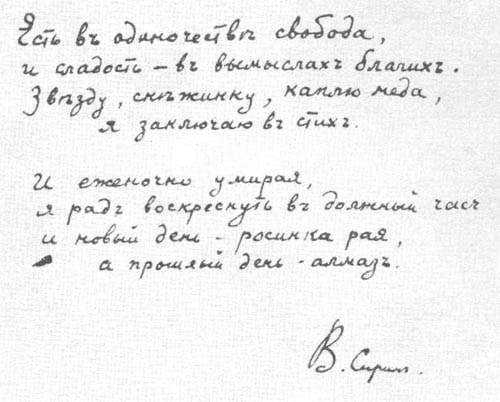 Есть въ одиночествѣ свобода,
и сладость – въ вымыслахъ благихъ.
Звѣзду, снѣжинку, каплю меда,
я заключаю въ стихъ.
И еженочно умирая,
я радъ воскреснуть въ должный часъ
и новый день – росинка рая,
а прошлый день – алмазъ.
В. Сирин.